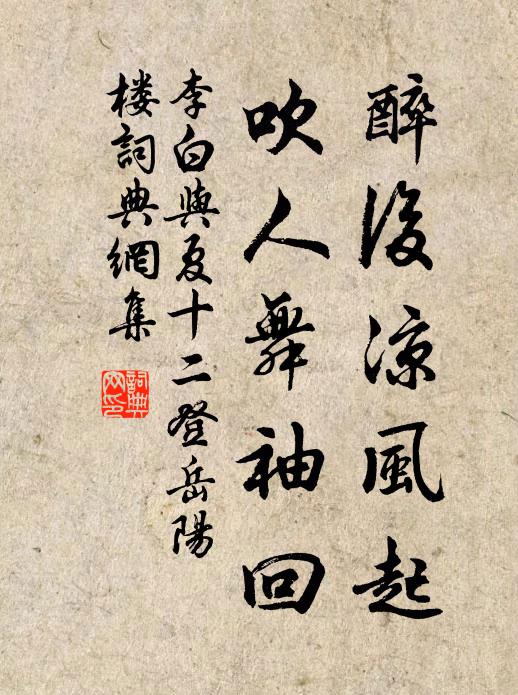 醉後涼風起
吹人舞袖回
李白與夏十二登岳陽
楼詞典網集
詞典
网印